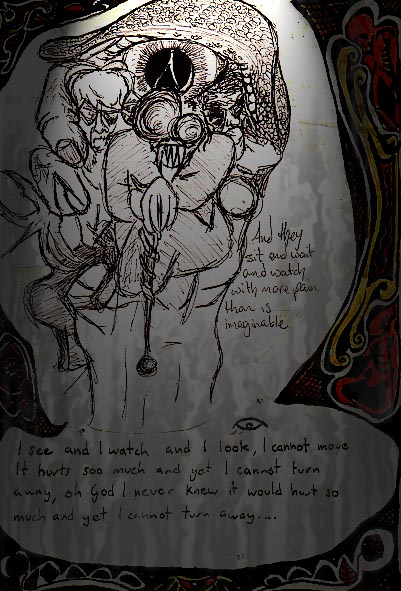 And they
sit and wait
and watch
with more pain
than is
imaginable
I see and I watch and I look, I cannot move
It hurts soo much and yet I cannot turn
away, oh God I never knew it would hurt so
much and yet I cannot turn away....